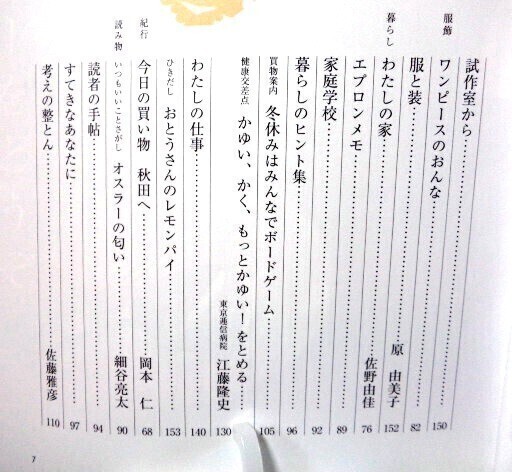 試作室から 150
服飾 ワンピースのおんな 82
服と装 原 由美子 152
暮らし わたしの家 佐野由佳 76
エプロンメモ 89
家庭学校 92
暮らしのヒント集 96
買物案内 冬休みはみんなでボードゲーム 105
健康交差点 かゆい、かく、もっとかゆい！をとめる 東京逓信病院 江藤隆史 130
わたしの仕事 140
ひきだし おとうさんのレモンパイ 153
紀行 今日の買い物 秋田へ 岡本 仁 68
読み物 いつもいいことさがし オスラーの匂い 細谷亮太 90
読者の手帖 94
すてきなあなたに 97
考えの整とん 佐藤雅彦 110
7